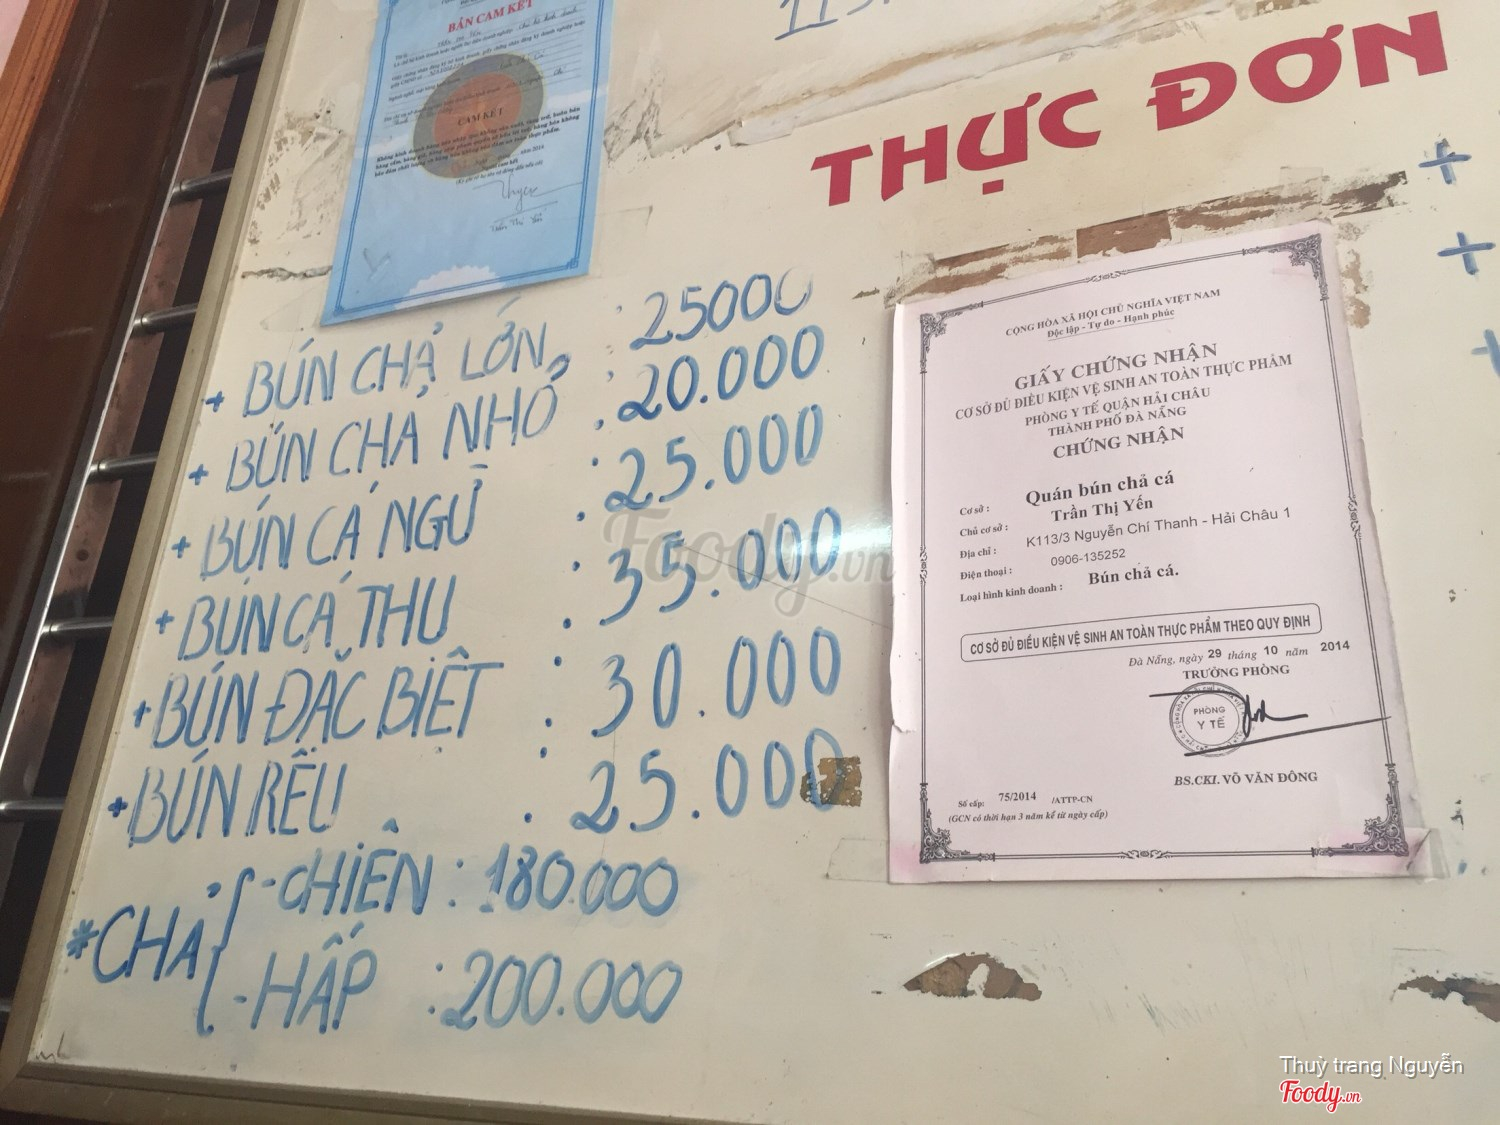 BẢN CAM KẾT
CAM KẾT
THỰC ĐƠN
+ BÚN CHẢ LỚN : 25000
+ BÚN CHẢ NHỎ : 20.000
+ BÚN CÁ NGỪ : 25.000
+ BÚN CÁ THU : 35.000
+ BÚN ĐẶC BIỆT : 30.000
+ BÚN RÊU : 25.000
* CHẢ { - CHIÊN : 180.000
- HẤP : 200.000
CỘNG HÒA XÃ HỘI CHỦ NGHĨA VIỆT NAM
Độc lập - Tự do - Hạnh phúc
GIẤY CHỨNG NHẬN
CƠ SỞ ĐỦ ĐIỀU KIỆN VỆ SINH AN TOÀN THỰC PHẨM
PHÒNG Y TẾ QUẬN HẢI CHÂU
THÀNH PHỐ ĐÀ NẴNG
CHỨNG NHẬN
Cơ sở : Quán bún chả cá
Chủ cơ sở : Trần Thị Yến
Địa chỉ : K113/3 Nguyễn Chí Thanh - Hải Châu 1
Điện thoại : 0906-135252
Loại hình kinh doanh : Bún chả cá.
CƠ SỞ ĐỦ ĐIỀU KIỆN VỆ SINH AN TOÀN THỰC PHẨM THEO QUY ĐỊNH
Đà Nẵng, ngày 29 tháng 10 năm 2014
TRƯỞNG PHÒNG
PHÒNG
Y TẾ
BS.CKI. VÕ VĂN ĐÔNG
Số cấp: 75/2014 /ATTP-CN
(GCN có thời hạn 3 năm kể từ ngày cấp)
Foody.vn
Thuỳ trang Nguyễn
Foody.vn